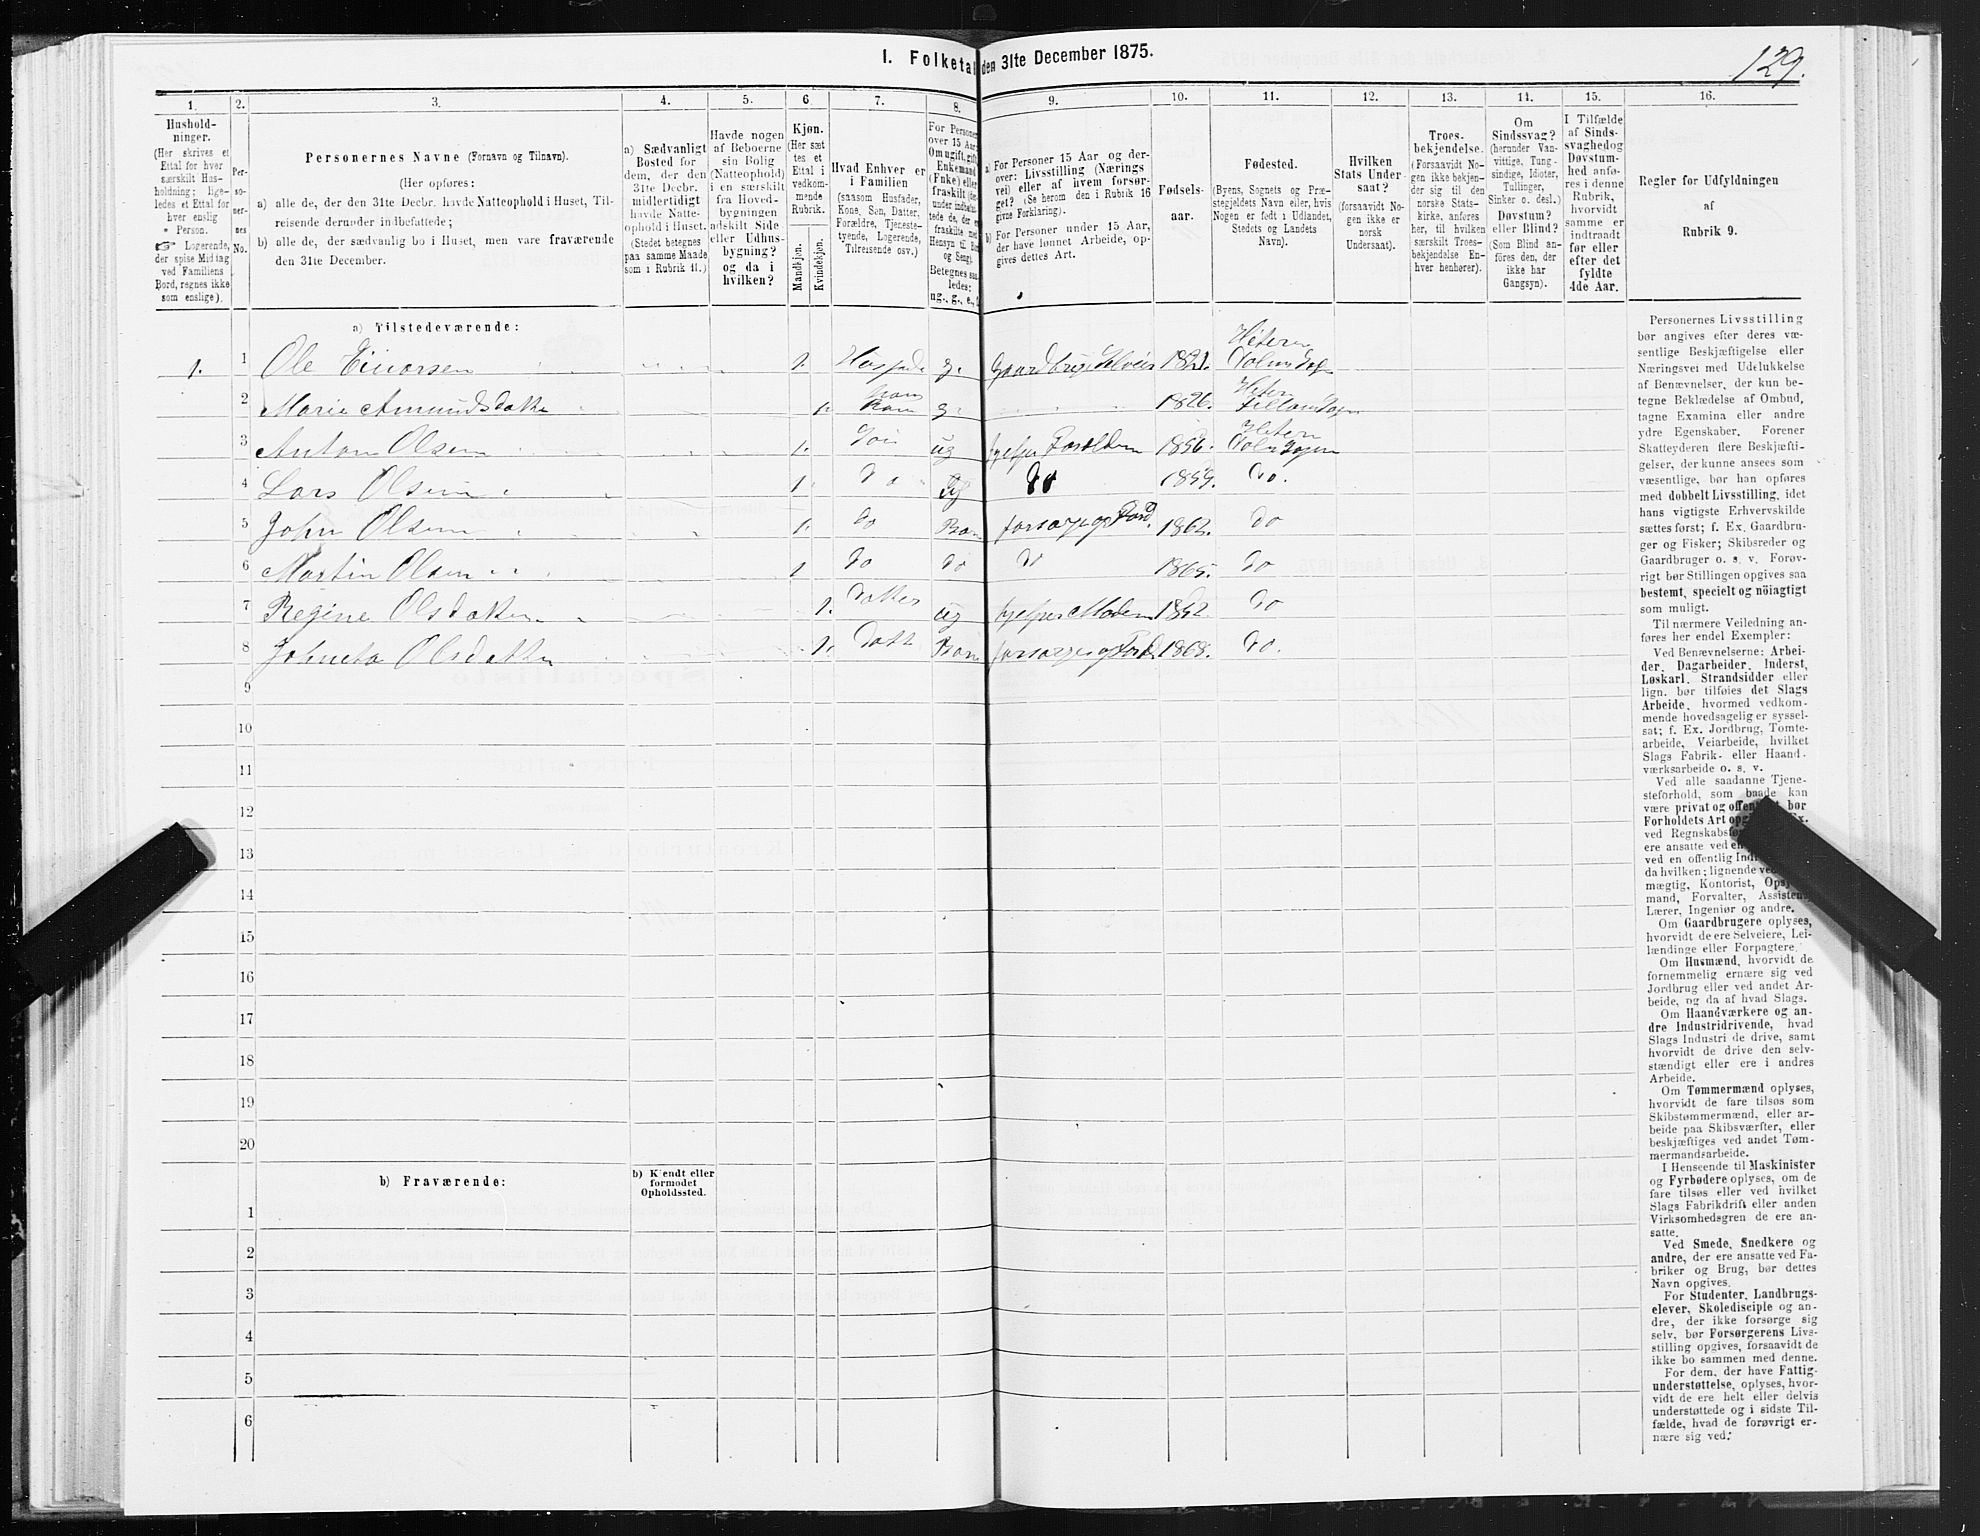 I. Folketal den 31te December 1875.
129.
1.
Hushold-
ninger.
(Her skrives et
Ettal for hver
særskilt Hus-
holdning; lige-
ledes et Ettal for
hver enslig
Person.
Logerende,
der spise Middag
ved Familiens
Bord, regnes ikke
som enslige).
2.
Per-
so-
ner-
nes
No.
3.
Personernes Navne (Fornavn og Tilnavn).
(Her opføres:
a) alle de, der den 31te Decbr. havde Natteophold i Huset, Til-
reisende derunder indbefattede;
b) alle de, der sædvanlig bo i Huset, men vare fraværende
den 31te December.
4.
a) Sædvanligt
Bosted for
dem, der den
31te Decbr.
midlertidigt
havde Natte-
ophold i Huset.
(Stedet betegnes
paa samme Maade
som i Rubrik 11.)
5.
Havde nogen
af Beboerne
sin Bolig
(Natteophold)
i en særskilt
fra Hoved-
bygningen
adskilt Side
eller Udhus-
bygning?
og da i
hvilken?
6.
Kjøn.
(Her sæt-
tes et
Ettal i
vedkom-
mende
Rubrik.
Mandkjøn.
Kvindekjøn.
7.
Hvad Enhver er
i Familien
(saasom Husfader,
Kone, Søn, Datter,
Forældre, Tjeneste-
tyende, Logerende,
Tilreisende osv.)
8.
For Personer
over 15 Aar:
Om ugift, gift,
Enkemand
(Enke) eller
fraskilt
Betegnes saa-
ledes:
ug., g., e.,
9.
a) For Personer 15 Aar og der-
over: Livsstilling (Nærings-
vei) eller af hvem forsør-
get? (Se herom den i Rubrik 16
givne Forklaring).
b) For Personer under 15 Aar,
der have lønnet Arbeide, op-
gives dettes Art.
10.
Fødsels-
aar.
11.
Fødested.
(Byens, Sognets og Præ-
stegjeldets Navn eller, hvis
Nogen er født i Udlandet,
Stedets og Landets
Navn).
12.
Hvilken
Stats Under-
saat?
(forsaavidt No-
gen ikke er
norsk
Undersaat).
13.
Troes-
bekjendelse.
(Forsaavidt No-
gen ikke bekjen-
der sig til den
norske Stats-
kirke, anføres
her, til hvilken
særskilt Troes-
bekjendelse En-
hver henhører).
14.
Om
Sindssvag?
(herunder Van-
vittige, Tung-
sindige, Idioter,
Tullinger,
Sinker o. desl.)
Døvstum?
eller Blind?
(Som Blind an-
föres den, der
ikke har
Gangsyn).
15.
I Tilfælde
af Sinds-
svaghed og
Døvstum-
hed anfø-
res i denne
Rubrik,
hvorvidt
samme er
indtraadt
før eller
efter det
fyldte
4de Aar.
16.
Regler for Udfyldningen
af
Rubrik 9.
a) Tilstedeværende:
1. 1 Ole Einarsen 1. g. Gaardbruger Selveier 1821. Hitern Dolm Sogn
2 Marie Amundsdatter 1. Kone g. 1826. Hitern Fillan Sogn
3 Anton Olsen 1. Søn ug hjelper Forældrene 1856. Hitern Dolm Sogn
4 Lars Olsen 1. do ug do 1859. do.
5 John Olsen 1. do Barn forsørges af Foræld. 1862. do
6 Martin Olsen 1 do do do 1865. do
7 Regine Olsdatter 1. Datter ug hjelper Moderen 1852. do
8 Johneta Olsdatter 1. Datt Barn forsørges af Foræld. 1868. do.
9
10
11
12
13
14
15
16
17
18
19
20
b) Fraværende:
b) Kjendt eller
formodet
Opholdssted.
1
2
3
4
5
6
Personernes Livsstilling
bør angives efter deres væ-
sentlige Beskjæftigelse eller
Næringsvei med Udelukkelse
af Benævnelser, der kun be-
tegne Beklædelse af Ombud,
tagne Examina eller andre
ydre Egenskaber. Forener
Skatteyderen flere Beskjæfti-
gelser, der kunne ansees som
væsentlige, bør han opføres
med dobbelt Livsstilling, idet
hans vigtigste Erhvervskilde
sættes først; f. Ex. Gaardbru-
ger og Fisker; Skibsreder og
Gaardbruger o. s. v. Forøv-
rigt bør Stillingen opgives saa
bestemt, specielt og nöiagtigt
som muligt.
Til nærmere Veiledning an-
føres her endel Exempler:
Ved Benævnelserne: Arbei-
der, Dagarbeider, Inderst,
Løskarl, Strandsidder eller
lign. bør tilføies det Slags
Arbeide, hvormed vedkom-
mende hovedsagelig er syssel-
sat; f. Ex. Jordbrug, Tomte-
arbeide, Veiarbeide, hvilket
Slags Fabrik- eller Haand-
værksarbeide o. s. v.
Ved alle saadanne Tjene-
steforhold, som baade kan
være privat og offentligt, bør
Forholdets Art
ved
ere ansatte ved
ved en offentlig
da hvilken; lignende ved
mægtig, Kontorist,
mand, Forvalter, Assistent,
Lærer, Ingeniør og andre.
Om Gaardbrugere oplyses,
hvorvidt de ere Selveiere, Lei-
lændinge eller Forpagtere.
Om Husmænd, hvorvidt de
fornemmelig ernære sig ved
Jordbrug eller ved andet Ar-
beide, og da af hvad Slags.
Om Haandværkere og an-
dre Industridrivende, hvad
Slags Industri de drive, samt
hvorvidt de drive den selv-
stændigt eller ere i andres
Arbeide.
Om Tømmermænd oplyses,
hvorvidt de fare tilsøs som
Skibstømmermænd, eller ar-
beide paa Skibsværfter, eller
beskjæftiges ved andet Tøm-
mermandsarbeide.
I Henseende til Maskinister
og Fyrbødere oplyses, om de
fare tilsøs eller ved hvilket
Slags Fabrikdrift eller anden
Virksomhedsgren de ere an-
satte.
Ved Smede, Snedkere og
andre, der ere ansatte ved Fa-
briker og Brug, bør dettes
Navn opgives.
For Studenter, Landbrugs-
elever, Skoledisciple og an-
dre, der ikke forsørge sig
selv, bør Forsørgerens Livs-
stilling opgives, forsaavidt de
ikke bo sammen med denne.
For dem, der have Fattig-
understøttelse, oplyses, hvor-
vidt de ere helt eller delvis
understøttede og i sidste Til-
fælde, hvad de forøvrigt er-
nære sig ved.